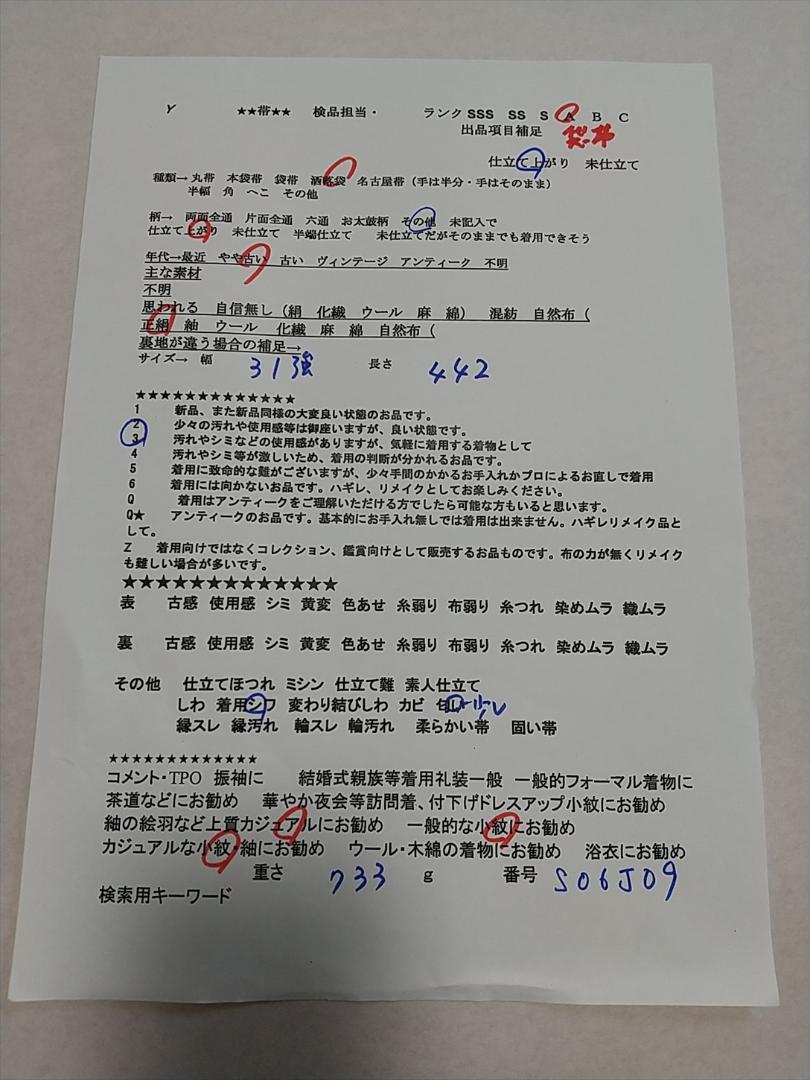 Y ★★帯★★ 検品担当・ ランク SSS SS S A B C
出品項目補足
仕立て上がり 未仕立て
種類→ 丸帯 本袋帯 袋帯 洒落袋 名古屋帯（手は半分・手はそのまま）
半幅 角 へこ その他
柄→ 両面全通 片面全通 六通 お太鼓柄 その他 未記入で
仕立て上がり 未仕立て 半端仕立て 未仕立てだがそのままでも着用できそう
年代→最近 やや古い 古い ヴィンテージ アンティーク 不明
主な素材
不明
思われる 自信無し（絹 化繊 ウール 麻 綿） 混紡 自然布（
正絹 紬 ウール 化繊 麻 綿 自然布（
裏地が違う場合の補足→
サイズ→ 幅 31強 長さ 442
★★★★★★★★★★★★★
1 新品、また新品同様の大変良い状態のお品です。
2 少々の汚れや使用感等は御座いますが、良い状態です。
3 汚れやシミなどの使用感がありますが、気軽に着用する着物として
4 汚れやシミ等が激しいため、着用の判断が分かれるお品です。
5 着用に致命的な難がございますが、少々手間のかかるお手入れかプロによるお直しで着用
6 着用には向かないお品です。ハギレ、リメイクとしてお楽しみください。
Q 着用はアンティークをご理解いただける方でしたら可能な方もいると思います。
Q★ アンティークのお品です。基本的にお手入れ無しでは着用は出来ません。ハギレリメイク品と
して。
Z 着用向けではなくコレクション、鑑賞向けとして販売するお品ものです。布の力が無くリメイク
も難しい場合が多いです。
★★★★★★★★★★★★★
表 古感 使用感 シミ 黄変 色あせ 糸弱り 布弱り 糸つれ 染めムラ 織ムラ
裏 古感 使用感 シミ 黄変 色あせ 糸弱り 布弱り 糸つれ 染めムラ 織ムラ
その他 仕立てほつれ ミシン 仕立て難 素人仕立て
しわ 着用シワ 変わり結びしわ カビ 匂い
縁スレ 縁汚れ 輪スレ 輪汚れ 柔らかい帯 固い帯
★★★★★★★★★★★★★
コメント・TPO 振袖に 結婚式親族等着用礼装一般 一般的フォーマル着物に
茶道などにお勧め 華やか夜会等訪問着、付下げドレスアップ小紋にお勧め
紬の絵羽など上質カジュアルにお勧め 一般的な小紋にお勧め
カジュアルな小紋・紬にお勧め ウール・木綿の着物にお勧め 浴衣にお勧め
重さ 733 g 番号 S06J09
検索用キーワード